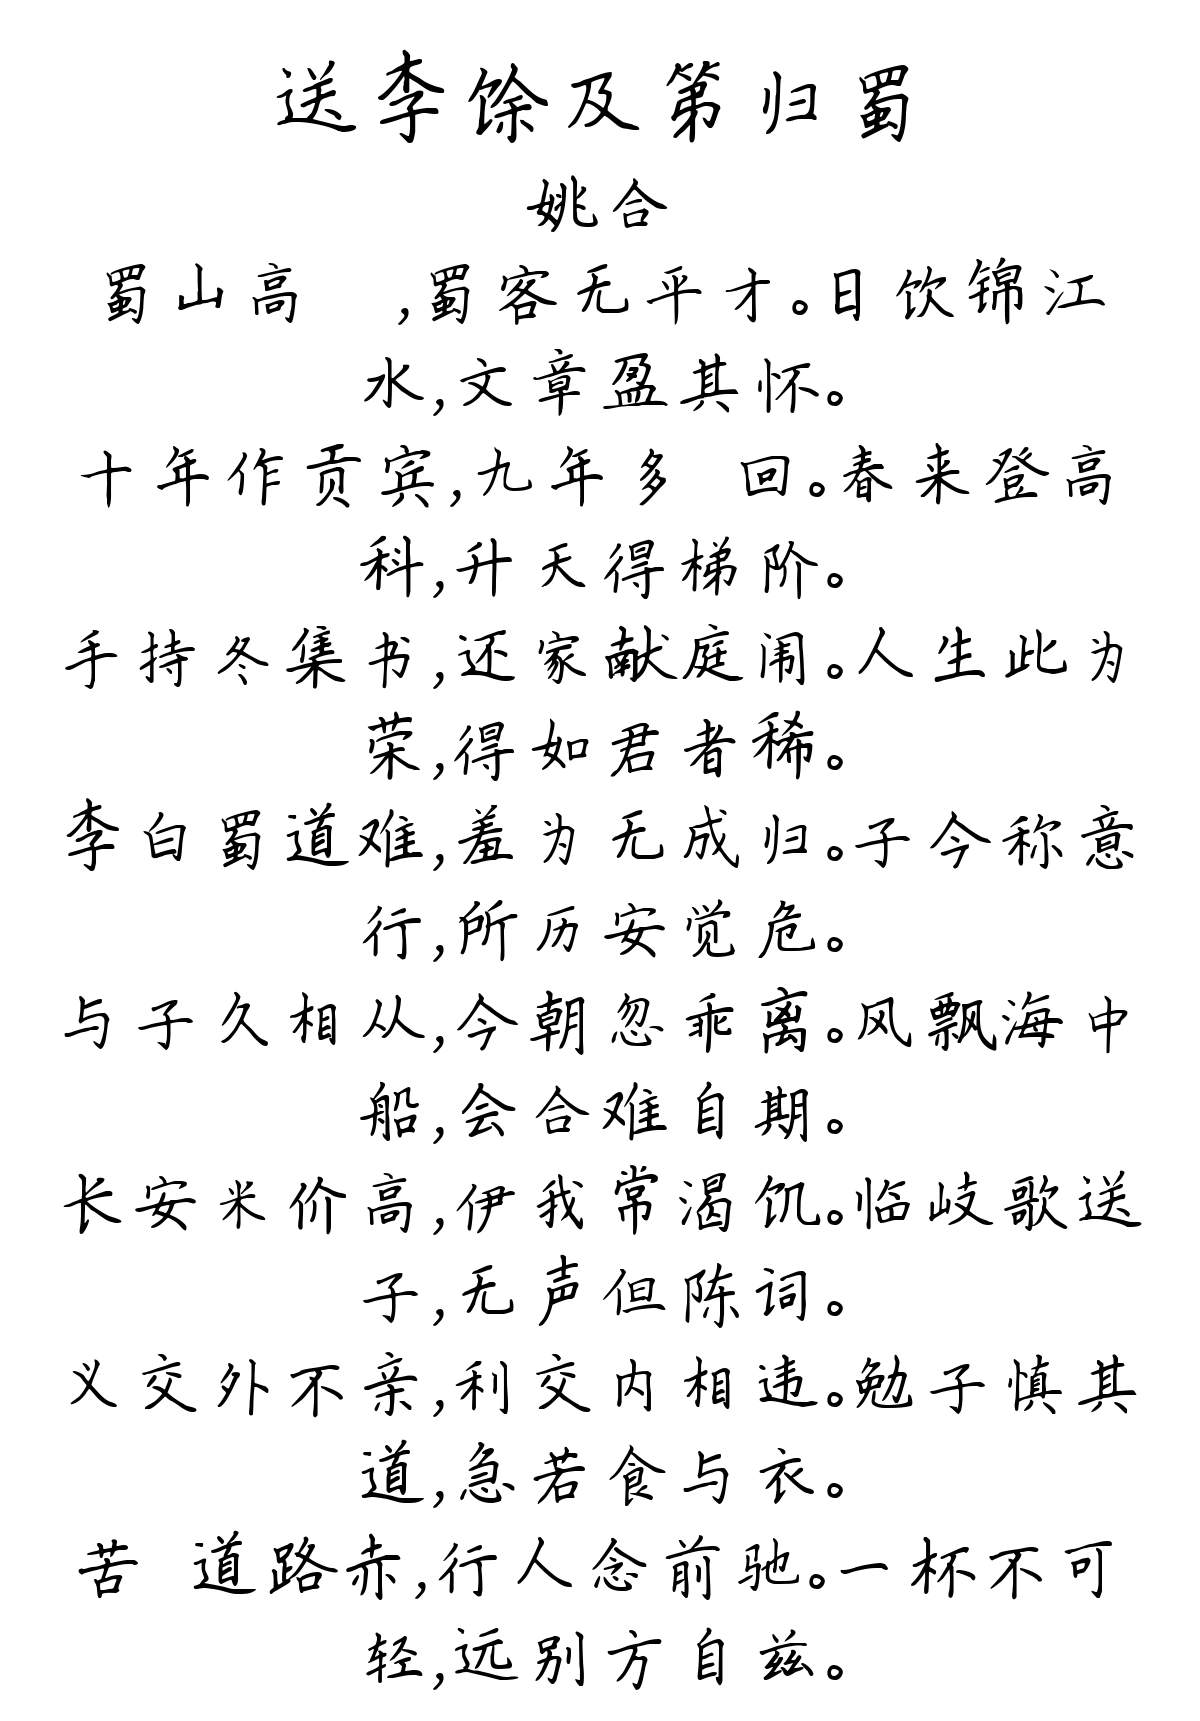 送李馀及第归蜀
姚合
蜀山高 ,蜀客无平才。日饮锦江
水,文章盈其怀。
十年作贡宾,九年多 回。春来登高
科,升天得梯阶。
手持冬集书,还家献庭闱。人生此为
荣,得如君者稀。
李白蜀道难,羞为无成归。子今称意
行,所历安觉危。
与子久相从,今朝忽乖离。风飘海中
船,会合难自期。
长安米价高,伊我常渴饥。临岐歌送
子,无声但陈词。
义交外不亲,利交内相违。勉子慎其
道,急若食与衣。
苦 道路赤,行人念前驰。一杯不可
轻,远别方自兹。